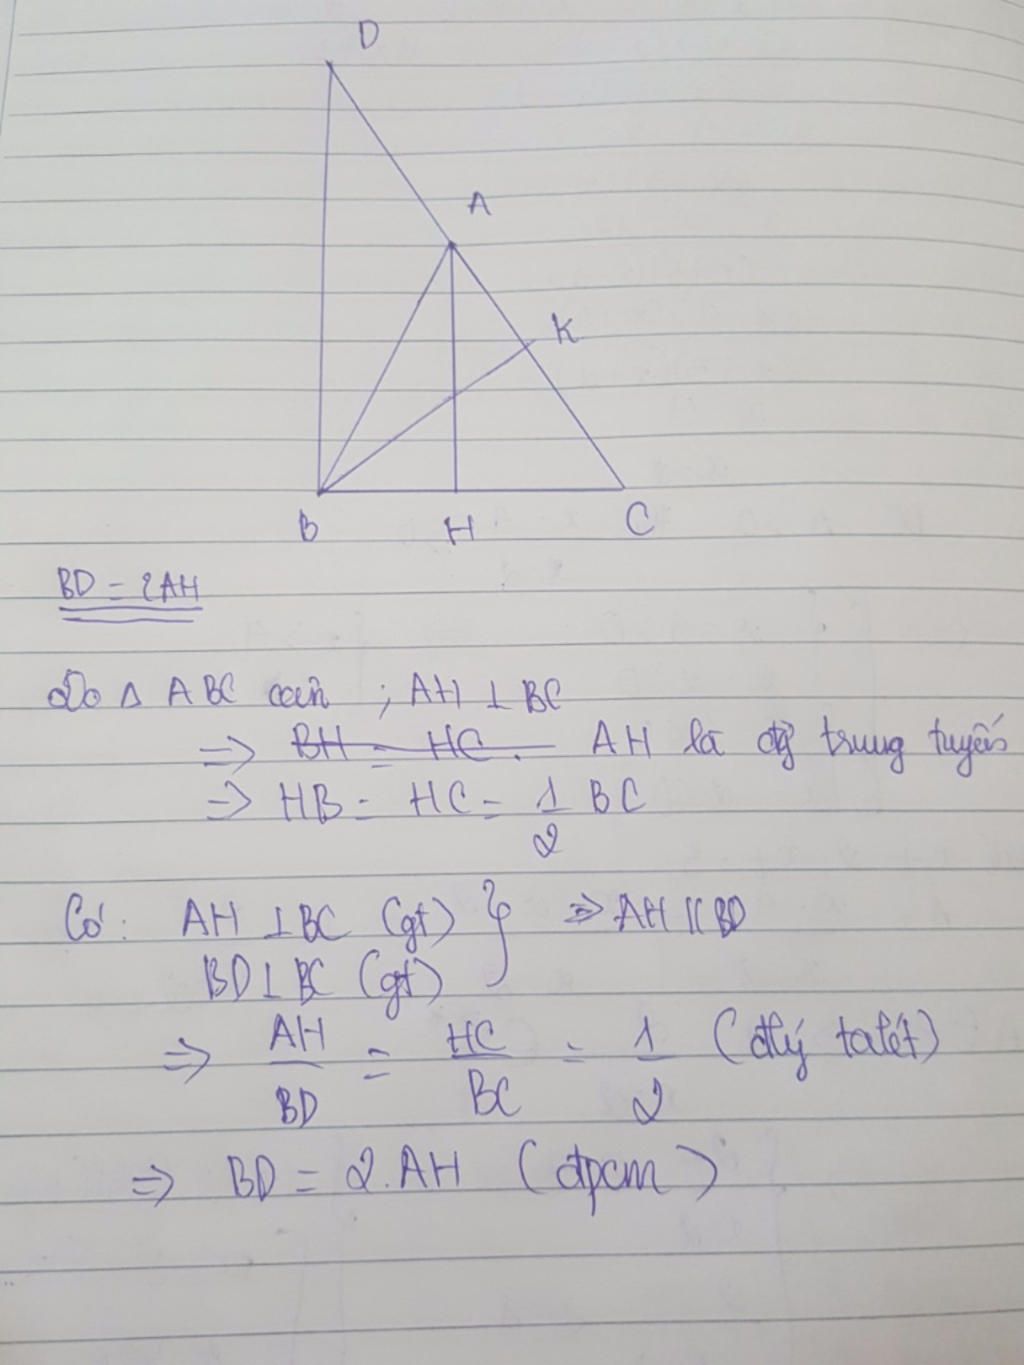 D
A
K
B H C
BD = 2AH
Do Δ ABC cân ; AH ⊥ BC
=> BH = HC. AH là đg trung tuyến
=> HB = HC = 1/2 BC
Có: AH ⊥ BC (gt) } => AH // BD
BD ⊥ BC (gt)
=> AH/BD = HC/BC = 1/2 (đlý talét)
=> BD = 2.AH (đpcm)